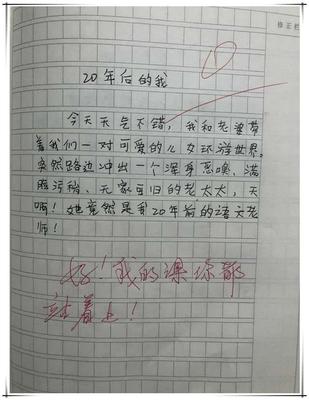 修正栏
20年后的我
今天天气不错，我和老婆带
着我们一对可爱的儿女环游世界，
突然路边冲出一个浑身恶臭、满
脸污秽、无家可归的老太太，天
啊！她竟然是我20年前的语文老
师！
好！我的课你都
站着上！